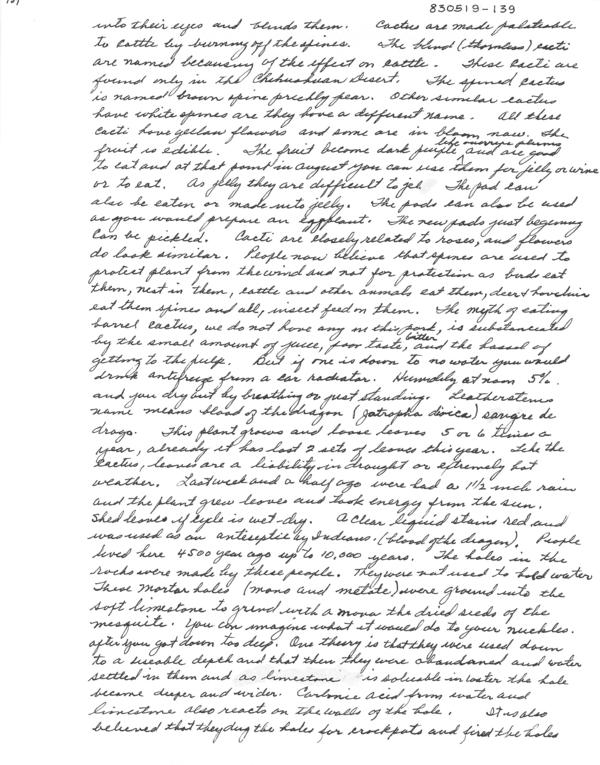 830519-139
into their eyes and blinds them. Cactus are made palatable
to cattle by burning off the spines. The blind (thornless) cacti
are named becausing of the effect on cattle. These cacti are
found only in the Chihuahuan Desert. The spined cactus
is named brown spine prickly pear. Other similar cactus
have white spines are they have a different name. All these
cacti have yellow flowers and some are in bloom now. The
fruit is edible. The fruit become dark purple like overripe plums and are good
to eat and at that point in August you can use them for jelly or wine
or to eat. As jelly they are difficult to jel The pad can
also be eaten or made into jelly. The pads can also be used
as you would prepare an eggplant. The new pads just begining
can be pickled. Cacti are closely related to roses, and flowers
do look similar. People now believe that spines are used to
protect plant from the wind and not for protection as birds eat
them, nest in them, cattle and other animals eat them, deer &
eat them spines and all, insect feed on them. The myth of eating
barrel cactus, we do not have any in this park, is substanciated
by the small amount of juice, poor taste, bitter, and the hassel of
getting to the pulp. But if one is down to no water you would
drink antifreeze from a car radiator. Humidity at noon 5%.
and you dry out by breathing or just standing. Leatherstems
name means blood of the dragon (Jatropha dioica) sangre de
drago. This plant grows and loose leaves 5 or 6 times a
year, already it has lost 2 sets of leaves this year. Like the
cactus, leaves are a liability in drought or extremely hot
weather. Last week and a half ago were had a 1 1/2 inch rain
and the plant grew leaves and took energy from the sun.
Shed leaves if cycle is wet-dry. A clear liquid stains red and
was used as an antiseptic by Indians. (blood of the dragon). People
lived here 4500 year ago up to 10,000 years. The holes in the
rocks were made by these people. They were not used to hold water
These mortar holes (mono and metate) were ground into the
soft limestone to grind with a mona the dried seeds of the
mesquite. You can imagine what it would do to your nuckles.
after you got down too deep. One theory is that they were used down
to a useable depth and that then they were abandaned and water
settled in them and as limestone is soluable in water the hole
became deeper and wider. Carbonic acid from water and
limestone also reacts on the walls of the hole. It is also
believed that they dug the holes for crockpots and fired the holes